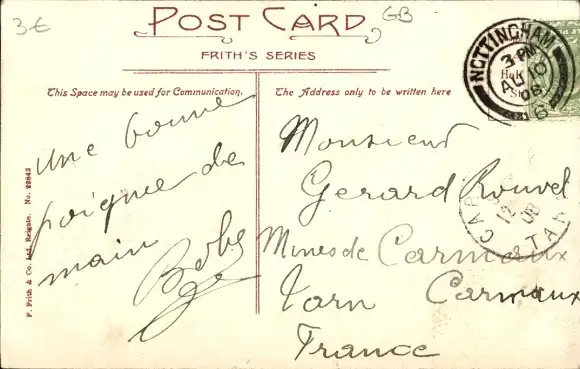 3€
GB
POST CARD
FRITH'S SERIES
This Space may be used for Communication.
The Address only to be written here
NOTTINGHAM
3 PM
AU 10
06
Une bonne
poignée de
main
Bebe
Monsieur
Gerard Rouvel
Mines de Carmeaux
Tarn Carmaux
France
CAR
12
08
TARN
F. Frith & Co. Ltd. Reigate. No. 22843